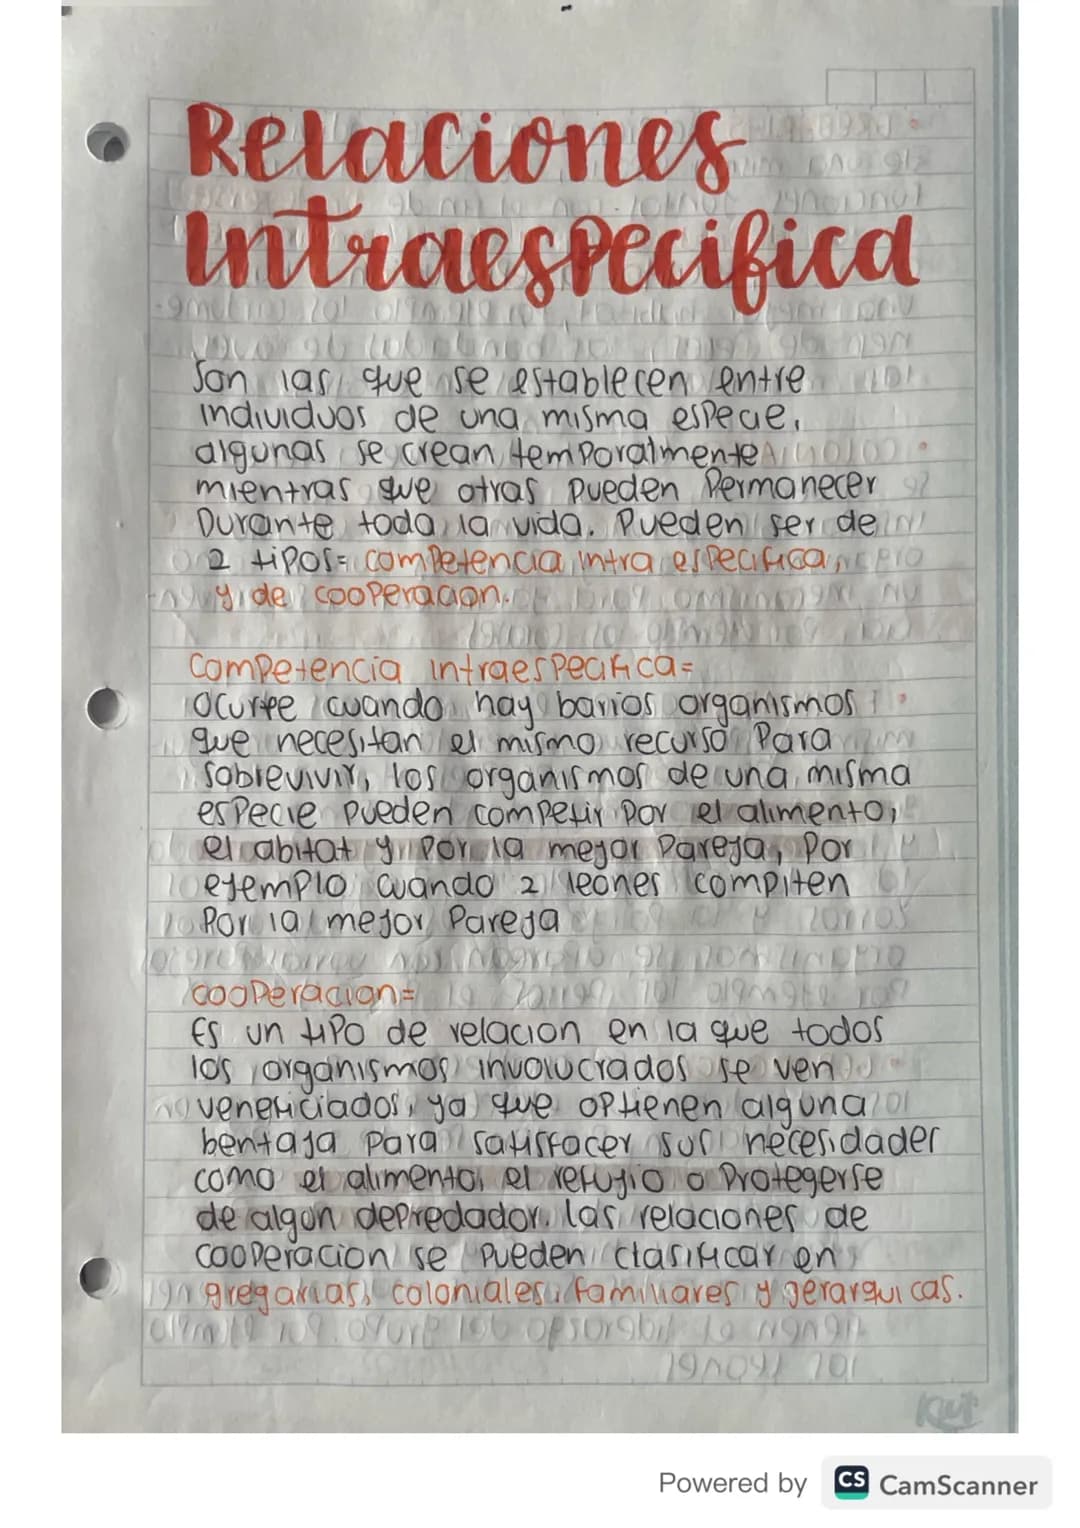 Relaciones
Intraespecifica
Son las que se establecen entre
individuos de una misma especie,
algunas se crean temporalmente
mientras que otras pueden Permanecer
Durante toda la vida. Pueden ser de
2 tipos= competencia intra especifica,
y de cooperacion.
Competencia intraespecifica=
Ocurre cuando hay barios organismos
que necesitan el mismo recurso Para
sobrevivir, los organismos de una misma
especie pueden competir por el alimento,
el abitat y por la mejor Pareja, Por
ejemplo cuando 2 leones compiten
Por la mejor Pareja
cooperacion=
Es un tipo de relacion en la que todos
los organismos involucrados se ven
veneficiados, ya que optienen alguna
bentaja para satisfacer sus necesidades
como el alimento, el refugio o Protegerse
de algun depredador. las relaciones de
cooperacion se pueden clasificar en
gregarias, coloniales, familiares y gerarquicas.
Powered by CS CamScanner